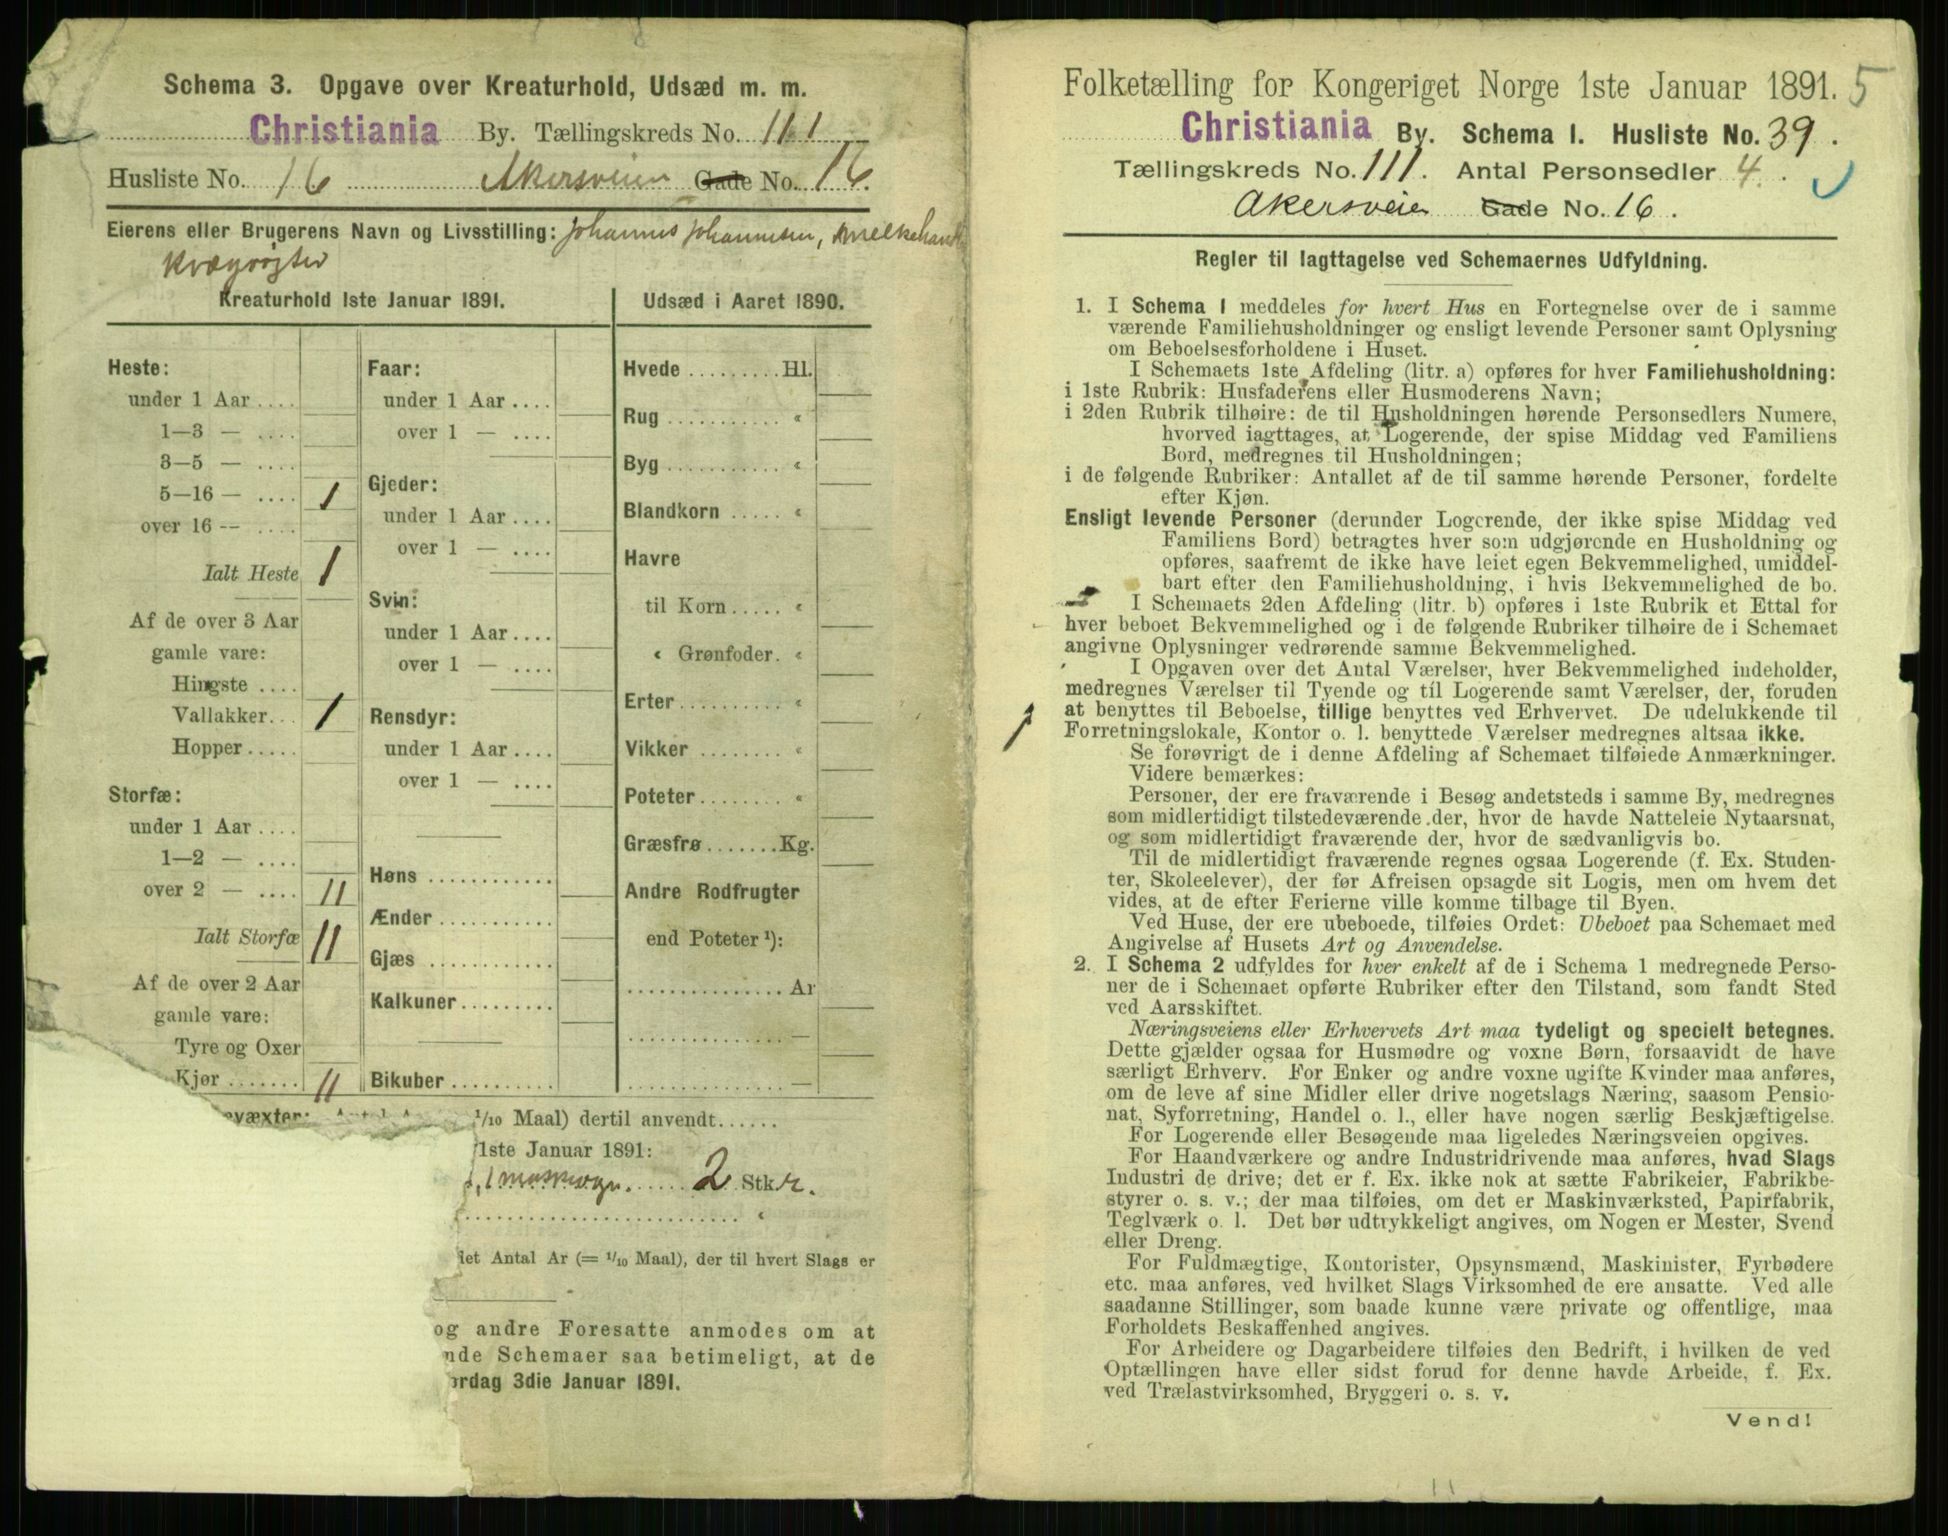 Schema 3. Opgave over Kreaturhold, Udsæd m. m.
Christiania By. Tællingskreds No. 111
Husliste No. 16 Akersveien Gade No. 16.
Eierens eller Brugerens Navn og Livsstilling: Johannes Johannesen, melkehandl
Kvægrøgter
Kreaturhold 1ste Januar 1891.
Heste:
under 1 Aar ....
1—3 — ....
3—5 — ....
5—16 — .... 1
over 16 — ....
Ialt Heste 1
Af de over 3 Aar
gamle vare:
Hingste ....
Vallakker... 1
Hopper .....
Storfæ:
under 1 Aar ....
1—2 — ....
over 2 — .... 11
Ialt Storfæ 11
Af de over 2 Aar
gamle vare:
Tyre og Oxer
Kjør ....... 11
Faar:
under 1 Aar ....
over 1 — ....
Gjeder:
under 1 Aar ....
over 1 — ....
Svin:
under 1 Aar ....
over 1 — ....
Rensdyr:
under 1 Aar ....
over 1 — ....
Høns ............
Ænder ...........
Gjæs ............
Kalkuner.........
Bikuber ..........
Udsæd i Aaret 1890.
Hvede ......... Hl.
Rug ........... «
Byg ........... «
Blandkorn ..... «
Havre
til Korn ..... «
« Grønfoder. «
Erter .......... «
Vikker ......... «
Poteter........ «
Græsfrø ....... Kg.
Andre Rodfrugter
end Poteter ¹):
............... Ar
............... —
............... —
evæxter: Antal A 1/10 Maal) dertil anvendt......
1ste Januar 1891:
2 Stkr.
.......................... «
det Antal Ar (= 1/10 Maal), der til hvert Slags er
og andre Foresatte anmodes om at
nde Schemaer saa betimeligt, at de
ordag 3die Januar 1891.
Folketælling for Kongeriget Norge 1ste Januar 1891. 5
Christiania By. Schema 1. Husliste No. 39.
Tællingskreds No. 111. Antal Personsedler 4.
Akersveien Gade No. 16.
Regler til Iagttagelse ved Schemaernes Udfyldning.
1. I Schema 1 meddeles for hvert Hus en Fortegnelse over de i samme
værende Familiehusholdninger og ensligt levende Personer samt Oplysning
om Beboelsesforholdene i Huset.
I Schemaets 1ste Afdeling (litr. a) opføres for hver Familiehusholdning:
i 1ste Rubrik: Husfaderens eller Husmoderens Navn;
i 2den Rubrik tilhøire: de til Husholdningen hørende Personsedlers Numere,
hvorved iagttages, at Logerende, der spise Middag ved Familiens
Bord, medregnes til Husholdningen;
i de følgende Rubriker: Antallet af de til samme hørende Personer, fordelte
efter Kjøn.
Ensligt levende Personer (derunder Logerende, der ikke spise Middag ved
Familiens Bord) betragtes hver som udgjørende en Husholdning og
opføres, saafremt de ikke have leiet egen Bekvemmelighed, umiddel-
bart efter den Familiehusholdning, i hvis Bekvemmelighed de bo.
I Schemaets 2den Afdeling (litr. b) opføres i 1ste Rubrik et Ettal for
hver beboet Bekvemmelighed og i de følgende Rubriker tilhøire de i Schemaet
angivne Oplysninger vedrørende samme Bekvemmelighed.
I Opgaven over det Antal Værelser, hver Bekvemmelighed indeholder,
medregnes Værelser til Tyende og til Logerende samt Værelser, der, foruden
at benyttes til Beboelse, tillige benyttes ved Erhvervet. De udelukkende til
Forretningslokale, Kontor o. l. benyttede Værelser medregnes altsaa ikke.
Se forøvrigt de i denne Afdeling af Schemaet tilføiede Anmærkninger.
Videre bemærkes:
Personer, der ere fraværende i Besøg andetsteds i samme By, medregnes
som midlertidigt tilstedeværende der, hvor de havde Natteleie Nytaarsnat,
og som midlertidigt fraværende der, hvor de sædvanligvis bo.
Til de midlertidigt fraværende regnes ogsaa Logerende (f. Ex. Studen-
ter, Skoleelever), der før Afreisen opsagde sit Logis, men om hvem det
vides, at de efter Ferierne ville komme tilbage til Byen.
Ved Huse, der ere ubeboede, tilføies Ordet: Ubeboet paa Schemaet med
Angivelse af Husets Art og Anvendelse.
2. I Schema 2 udfyldes for hver enkelt af de i Schema 1 medregnede Perso-
ner de i Schemaet opførte Rubriker efter den Tilstand, som fandt Sted
ved Aarsskiftet.
Næringsveiens eller Erhvervets Art maa tydeligt og specielt betegnes.
Dette gjælder ogsaa for Husmødre og voxne Børn, forsaavidt de have
særligt Erhverv. For Enker og andre voxne ugifte Kvinder maa anføres,
om de leve af sine Midler eller drive nogetslags Næring, saasom Pensio-
nat, Syforretning, Handel o. l., eller have nogen særlig Beskjæftigelse.
For Logerende eller Besøgende maa ligeledes Næringsveien opgives.
For Haandværkere og andre Industridrivende maa anføres, hvad Slags
Industri de drive; det er f. Ex. ikke nok at sætte Fabrikeier, Fabrikbe-
styrer o. s. v.; der maa tilføies, om det er Maskinværksted, Papirfabrik,
Teglværk o. l. Det bør udtrykkeligt angives, om Nogen er Mester, Svend
eller Dreng.
For Fuldmægtige, Kontorister, Opsynsmænd, Maskinister, Fyrbødere
etc. maa anføres, ved hvilket Slags Virksomhed de ere ansatte. Ved alle
saadanne Stillinger, som baade kunne være private og offentlige, maa
Forholdets Beskaffenhed angives.
For Arbeidere og Dagarbeidere tilføies den Bedrift, i hvilken de ved
Optællingen have eller sidst forud for denne havde Arbeide, f. Ex.
ved Trælastvirksomhed, Bryggeri o. s. v.
Vend!
11